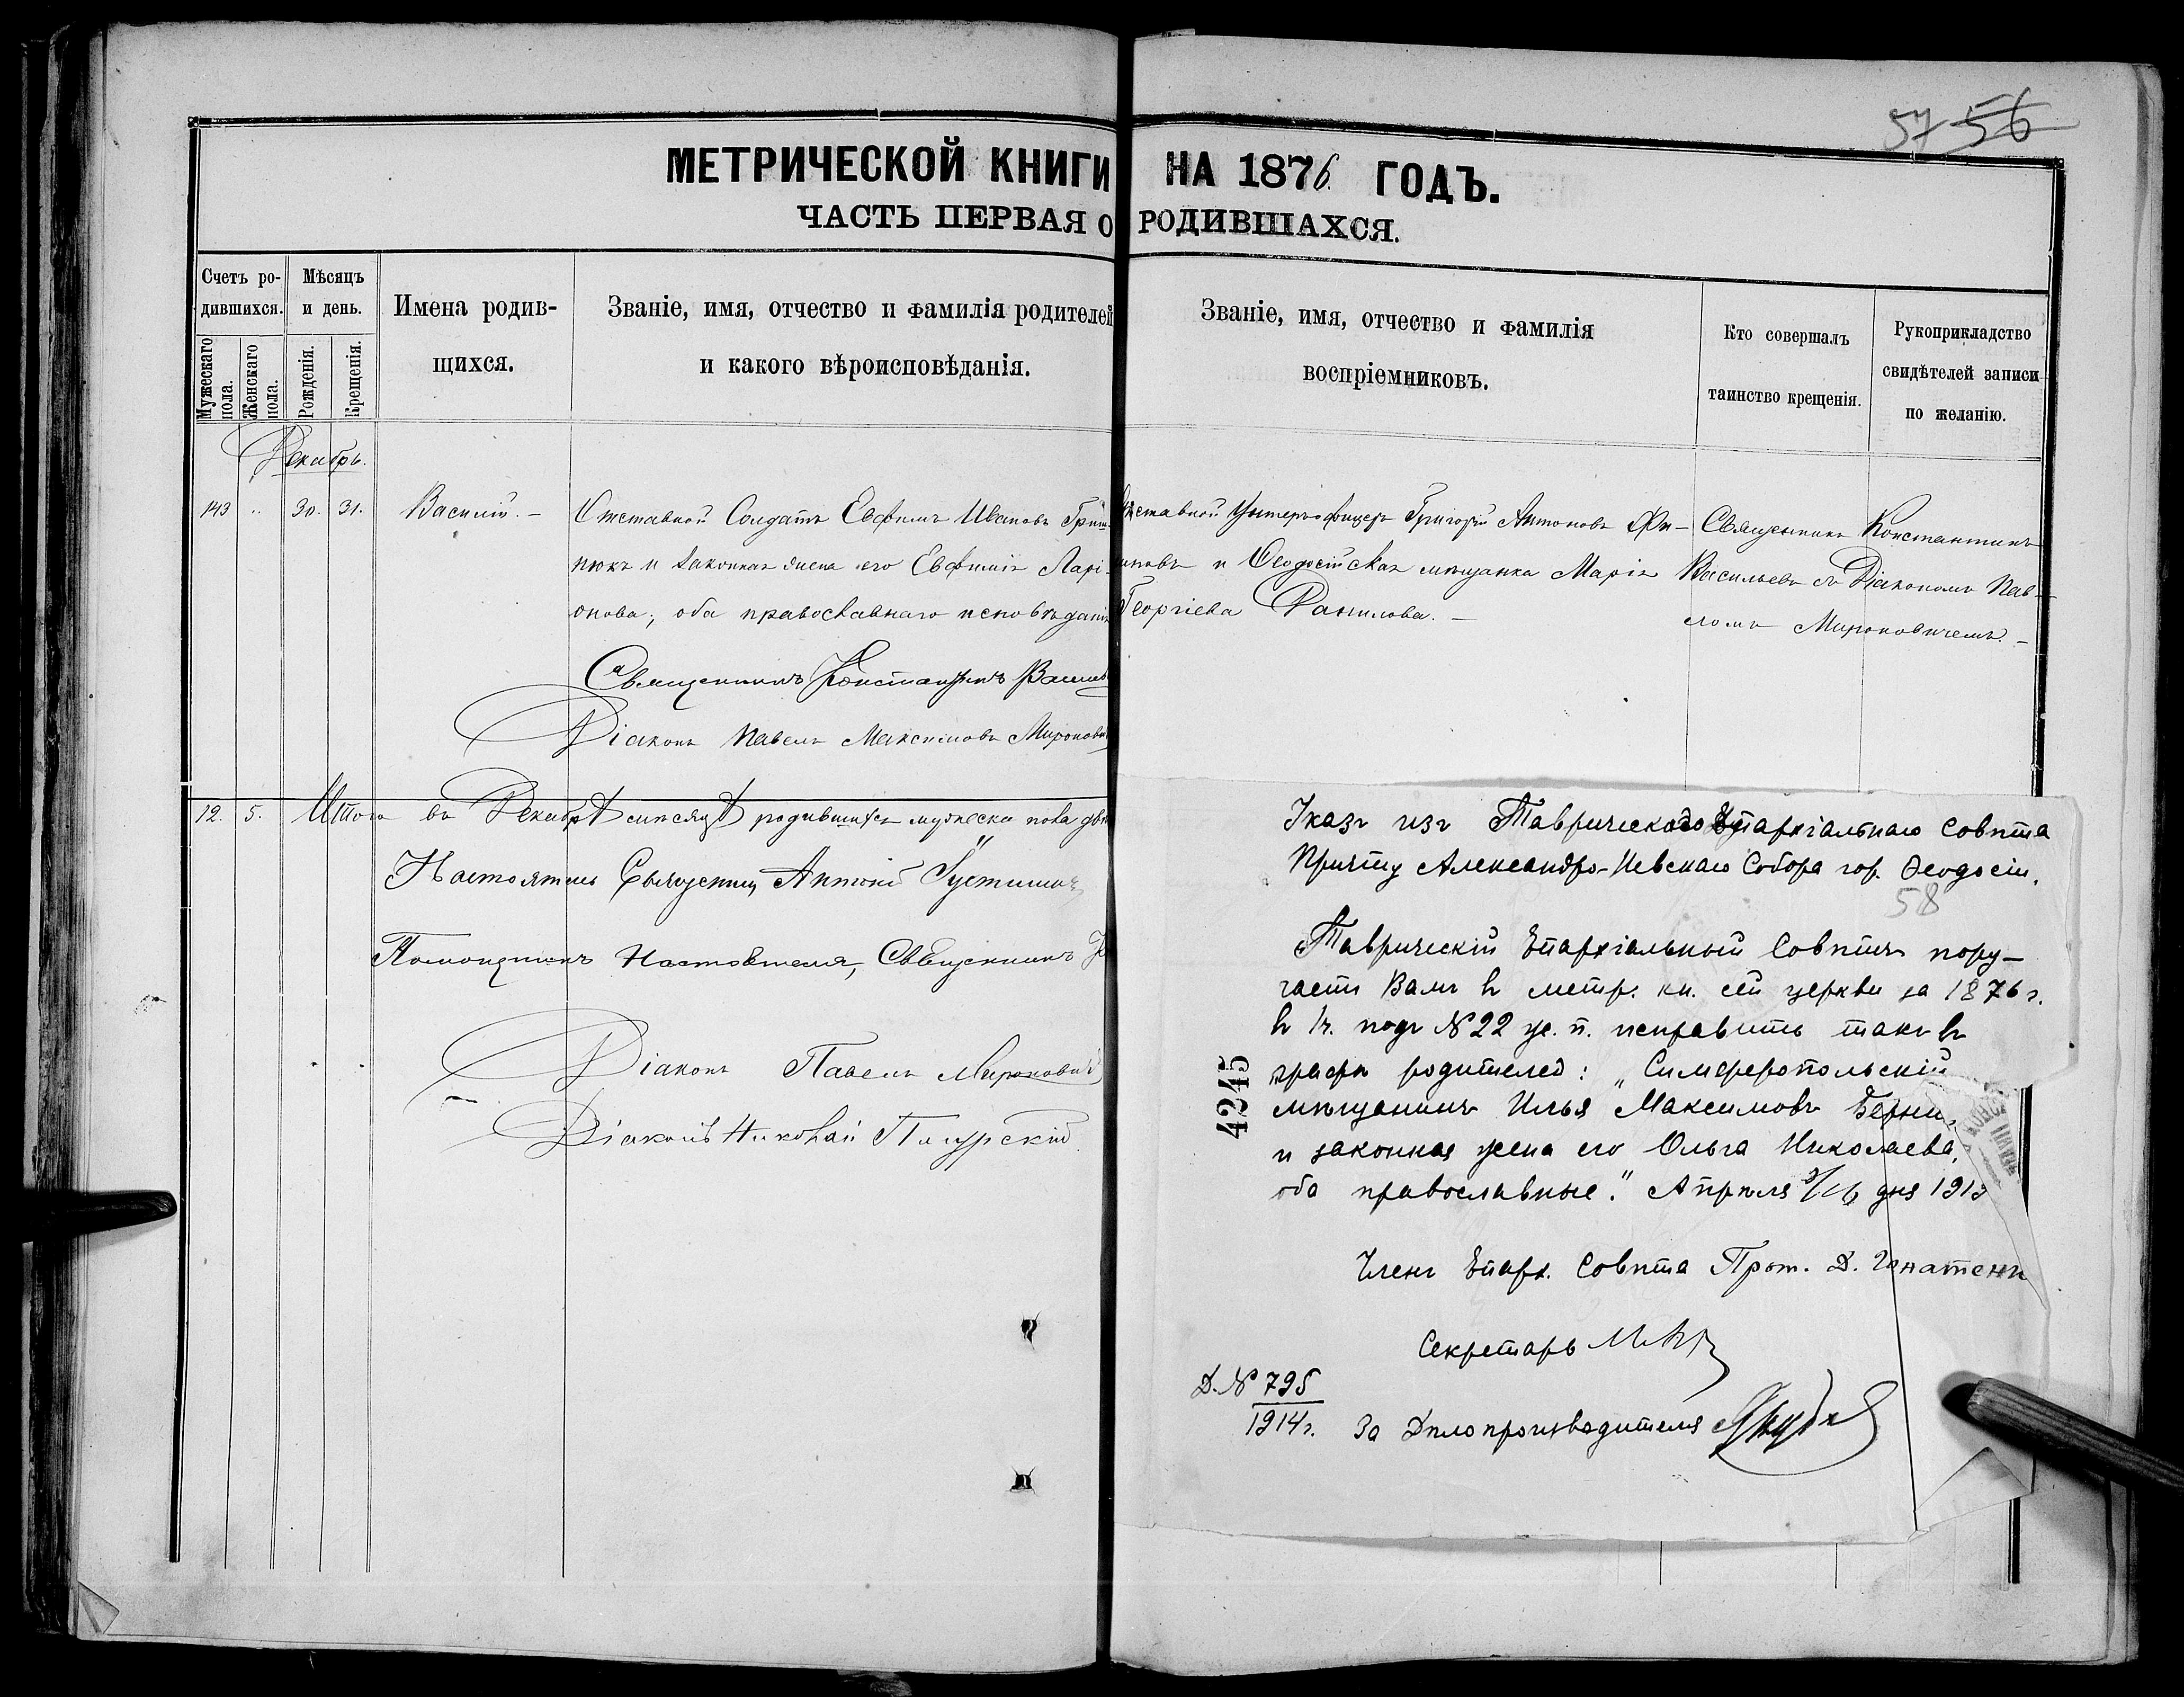 57 56
МЕТРИЧЕСКОЙ КНИГИ НА 1876 ГОДЪ.
ЧАСТЬ ПЕРВАЯ О РОДИВШАХСЯ.
Счетъ ро-
дившихся.
Мужескаго пола.
Женскаго пола.
Мѣсяцъ
и день.
Рожденія.
Крещенія.
Имена родив-
щихся.
Званіе, имя, отчество и фамилія родителей
и какого вѣроисповѣданія.
Званіе, имя, отчество и фамилія
воспріемниковъ.
Кто совершалъ
таинство крещенія.
Рукоприкладство
свидѣтелей записи
по желанію.
Декабрь.
143 .. 30. 31. Василій. –
Отставной Солдатъ Евфимъ Ивановъ
и законная жена его Евфимія Ларі-
онова; оба православнаго исповѣданія
Отставной Унтеръ-офицеръ Григорій Антоновъ Фи-
и Ѳеодосійская мѣщанка Марія
Георгіева Данилова. –
Священникъ Константинъ
Васильевъ съ Діакономъ Пав-
ломъ Мироновичемъ. –
Священникъ Константинъ
Діаконъ Павелъ Максимовъ
12. 5. Итого въ Декабрѣ мѣсяцѣ родившихся мужеска пола
Настоятель Священникъ Антоній
Помощникъ Настоятеля, Священникъ
Діаконъ Павелъ Мироновичъ
Діаконъ Николай
Указъ изъ Таврическаго Епархіальнаго Совѣта
Причту Александро-Невскаго Собора гор. Ѳеодосіи.
58
Таврическій Епархіальный Совѣтъ пору-
чаетъ Вамъ въ метр. кн. сей церкви за 1876 г.
въ 1 ч. подъ № 22 ж. п. исправить такъ въ
графѣ родителей: „Симферопольскій
мѣщанинъ Илья Максимовъ
и законная жена его Ольга Николаева,
оба православные." Апрѣля 3/16 дня
4245
Членъ Епарх. Совѣта Прот. Д.
Секретарь
Д. № 795
1914 г.
За Дѣлопроизводителя